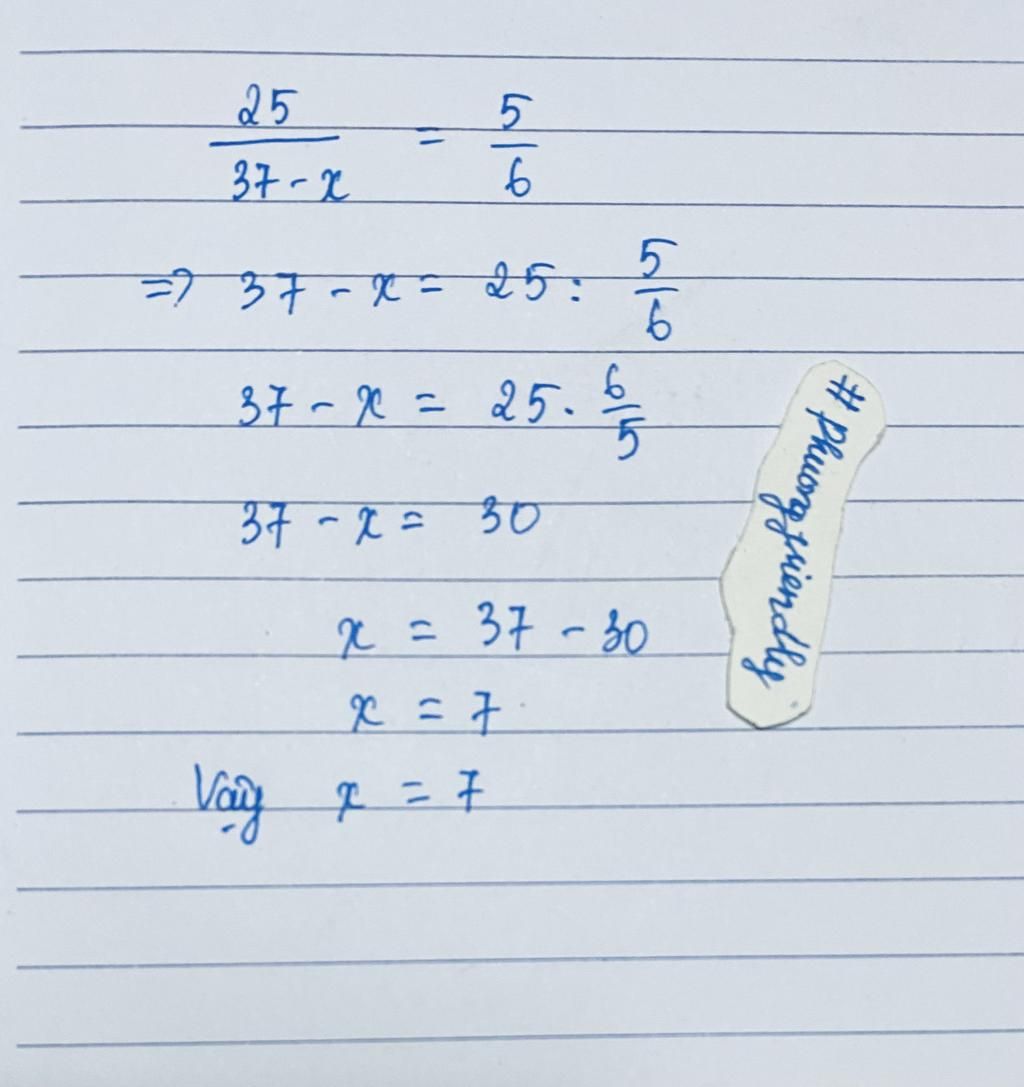 25/(37 - x) = 5/6
=> 37 - x = 25 : 5/6
37 - x = 25 . 6/5
37 - x = 30
x = 37 - 30
x = 7
Vậy x = 7
#phuongfriendly